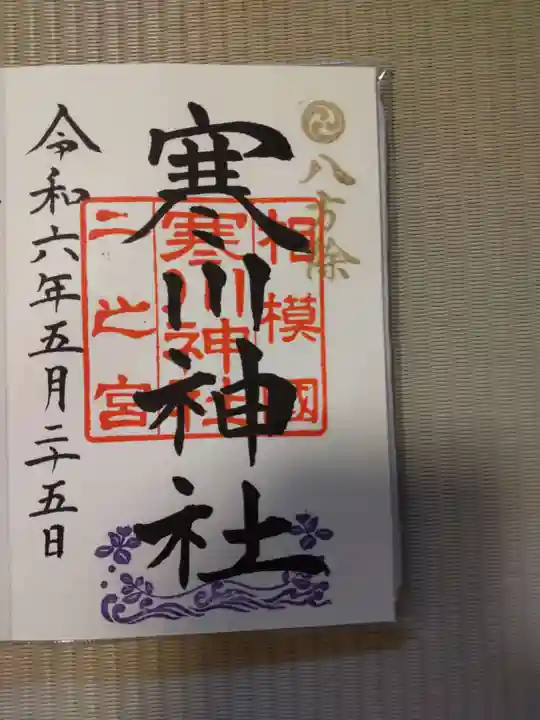 八方除
相模國
寒川神社
二之宮
寒川神社
令和六年五月二十五日